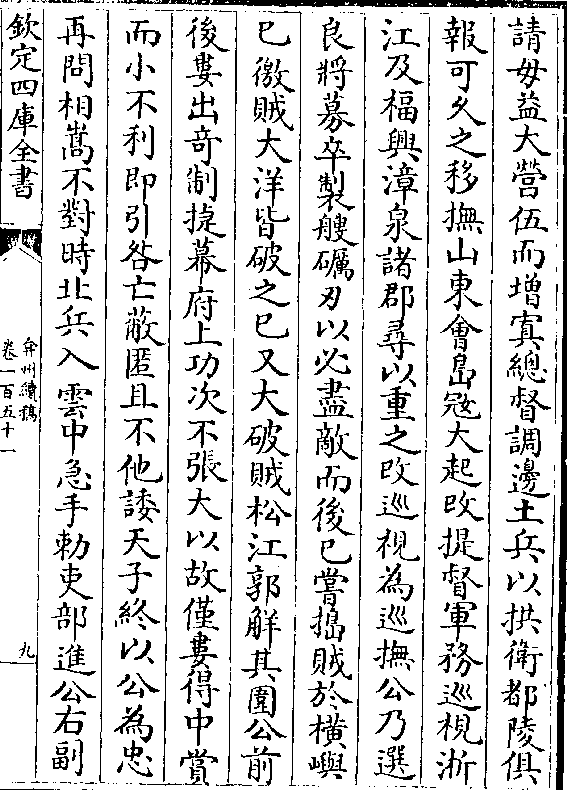 請毋益大營伍而增寘總督調邊土兵以拱衛都陵俱
報可乆之移撫山東會島冦大起改提督軍務巡視浙
江及福興漳泉諸郡尋以重之改巡視為巡撫公乃選
良將募卒製艘礪刃以必盡敵而後已嘗搗賊於橫嶼
已徼賊大洋皆破之已又大破賊松江郭觧其圍公前
後婁出竒制㨗幕府上功次不張大以故僅婁得中賞
而小不利即引咎亡蔽匿且不他諉天子終以公為忠
再問相嵩不對時北兵入雲中急手勅吏部進公右副
欽定四庫全書
弇州續稿
卷一百五十一
九